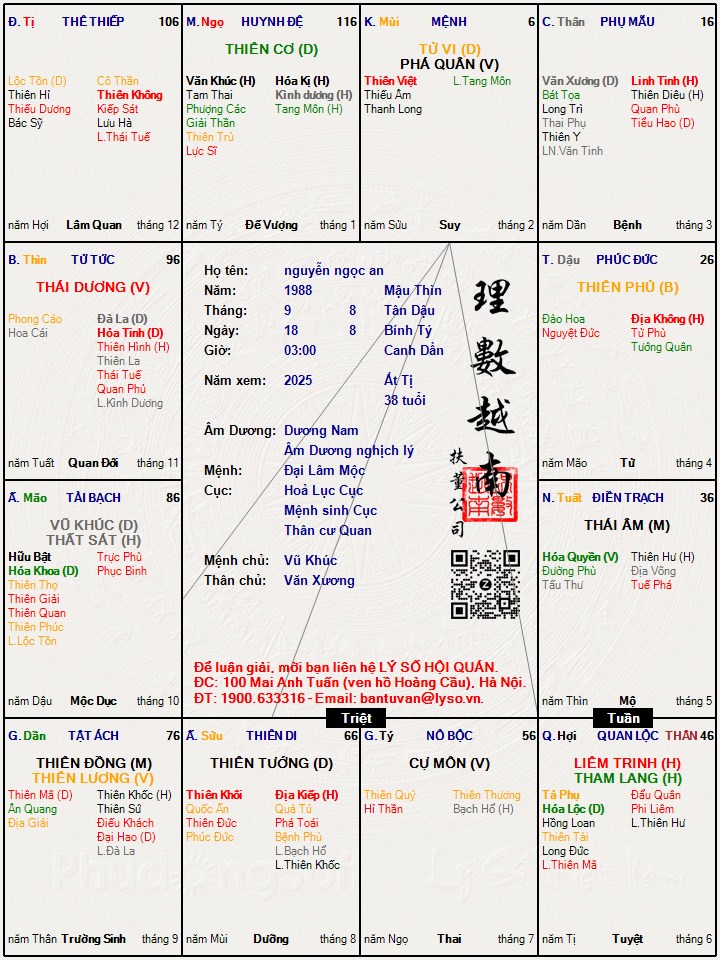 Đ. Tị THÊ THIẾP 106
Lộc Tồn (D)
Thiên Hỉ
Thiếu Dương
Bác Sỹ
Cô Thần
Thiên Không
Kiếp Sát
Lưu Hà
L.Thái Tuế
năm Hợi Lâm Quan tháng 12
M. Ngọ HUYNH ĐỆ 116
THIÊN CƠ (D)
Văn Khúc (H)
Tam Thai
Phượng Các
Giải Thần
Thiên Trù
Lực Sĩ
Hóa Kị (H)
Kình dương (H)
Tang Môn (H)
năm Tý Đế Vượng tháng 1
K. Mùi MỆNH 6
TỬ VI (D)
PHÁ QUÂN (V)
Thiên Việt
Thiếu Âm
Thanh Long
L.Tang Môn
năm Sửu Suy tháng 2
C. Thân PHỤ MẪU 16
Văn Xương (D)
Bát Tọa
Long Trì
Thai Phụ
Thiên Y
LN.Văn Tinh
Linh Tinh (H)
Thiên Diêu (H)
Quan Phù
Tiểu Hao (D)
năm Dần Bệnh tháng 3
B. Thìn TỬ TỨC 96
THÁI DƯƠNG (V)
Phong Cáo
Hoa Cái
Đà La (D)
Hỏa Tinh (D)
Thiên Hình (H)
Thiên La
Thái Tuế
Quan Phủ
L.Kình Dương
năm Tuất Quan Đới tháng 11
Họ tên: nguyễn ngọc an
Năm: 1988 Mậu Thìn
Tháng: 9 8 Tân Dậu
Ngày: 18 8 Bính Tý
Giờ: 03:00 Canh Dần
Năm xem: 2025 Ất Tị
38 tuổi
Âm Dương: Dương Nam
Âm Dương nghịch lý
Mệnh: Đại Lâm Mộc
Cục: Hoả Lục Cục
Mệnh sinh Cục
Thân cư Quan
Mệnh chủ: Vũ Khúc
Thân chủ: Văn Xương
理數越南
扶董公司
Để luận giải, mời bạn liên hệ LÝ SỐ HỘI QUÁN.
ĐC: 100 Mai Anh Tuấn (ven hồ Hoàng Cầu), Hà Nội.
ĐT: 1900.633316 - Email: bantuvan@lyso.vn.
T. Dậu PHÚC ĐỨC 26
THIÊN PHỦ (B)
Đào Hoa
Nguyệt Đức
Địa Không (H)
Tử Phù
Tướng Quân
năm Mão Tử tháng 4
Ấ. Mão TÀI BẠCH 86
VŨ KHÚC (D)
THẤT SÁT (H)
Hữu Bật
Hóa Khoa (D)
Thiên Thọ
Thiên Giải
Thiên Quan
Thiên Phúc
L.Lộc Tồn
Trực Phù
Phục Binh
năm Dậu Mộc Dục tháng 10
N. Tuất ĐIỀN TRẠCH 36
THÁI ÂM (M)
Hóa Quyền (V)
Đường Phù
Tấu Thư
Thiên Hư (H)
Địa Võng
Tuế Phá
năm Thìn Mộ tháng 5
Triệt
Tuần
G. Dần TẬT ÁCH 76
THIÊN ĐỒNG (M)
THIÊN LƯƠNG (V)
Thiên Mã (D)
Ân Quang
Địa Giải
Thiên Khốc (H)
Thiên Sứ
Điếu Khách
Đại Hao (D)
L.Đà La
năm Thân Trường Sinh tháng 9
Ấ. Sửu THIÊN DI 66
THIÊN TƯỚNG (D)
Thiên Khôi
Quốc Ấn
Thiên Đức
Phúc Đức
Địa Kiếp (H)
Quả Tú
Phá Toái
Bệnh Phù
L.Bạch Hổ
L.Thiên Khốc
năm Mùi Dưỡng tháng 8
G. Tý NÔ BỘC 56
CỰ MÔN (V)
Thiên Quý
Hỉ Thần
Thiên Thương
Bạch Hổ (H)
năm Ngọ Thai tháng 7
Q. Hợi QUAN LỘC THÂN 46
LIÊM TRINH (H)
THAM LANG (H)
Tả Phụ
Hóa Lộc (D)
Hồng Loan
Thiên Tài
Long Đức
L.Thiên Mã
Đẩu Quân
Phi Liêm
L.Thiên Hư
năm Tị Tuyệt tháng 6